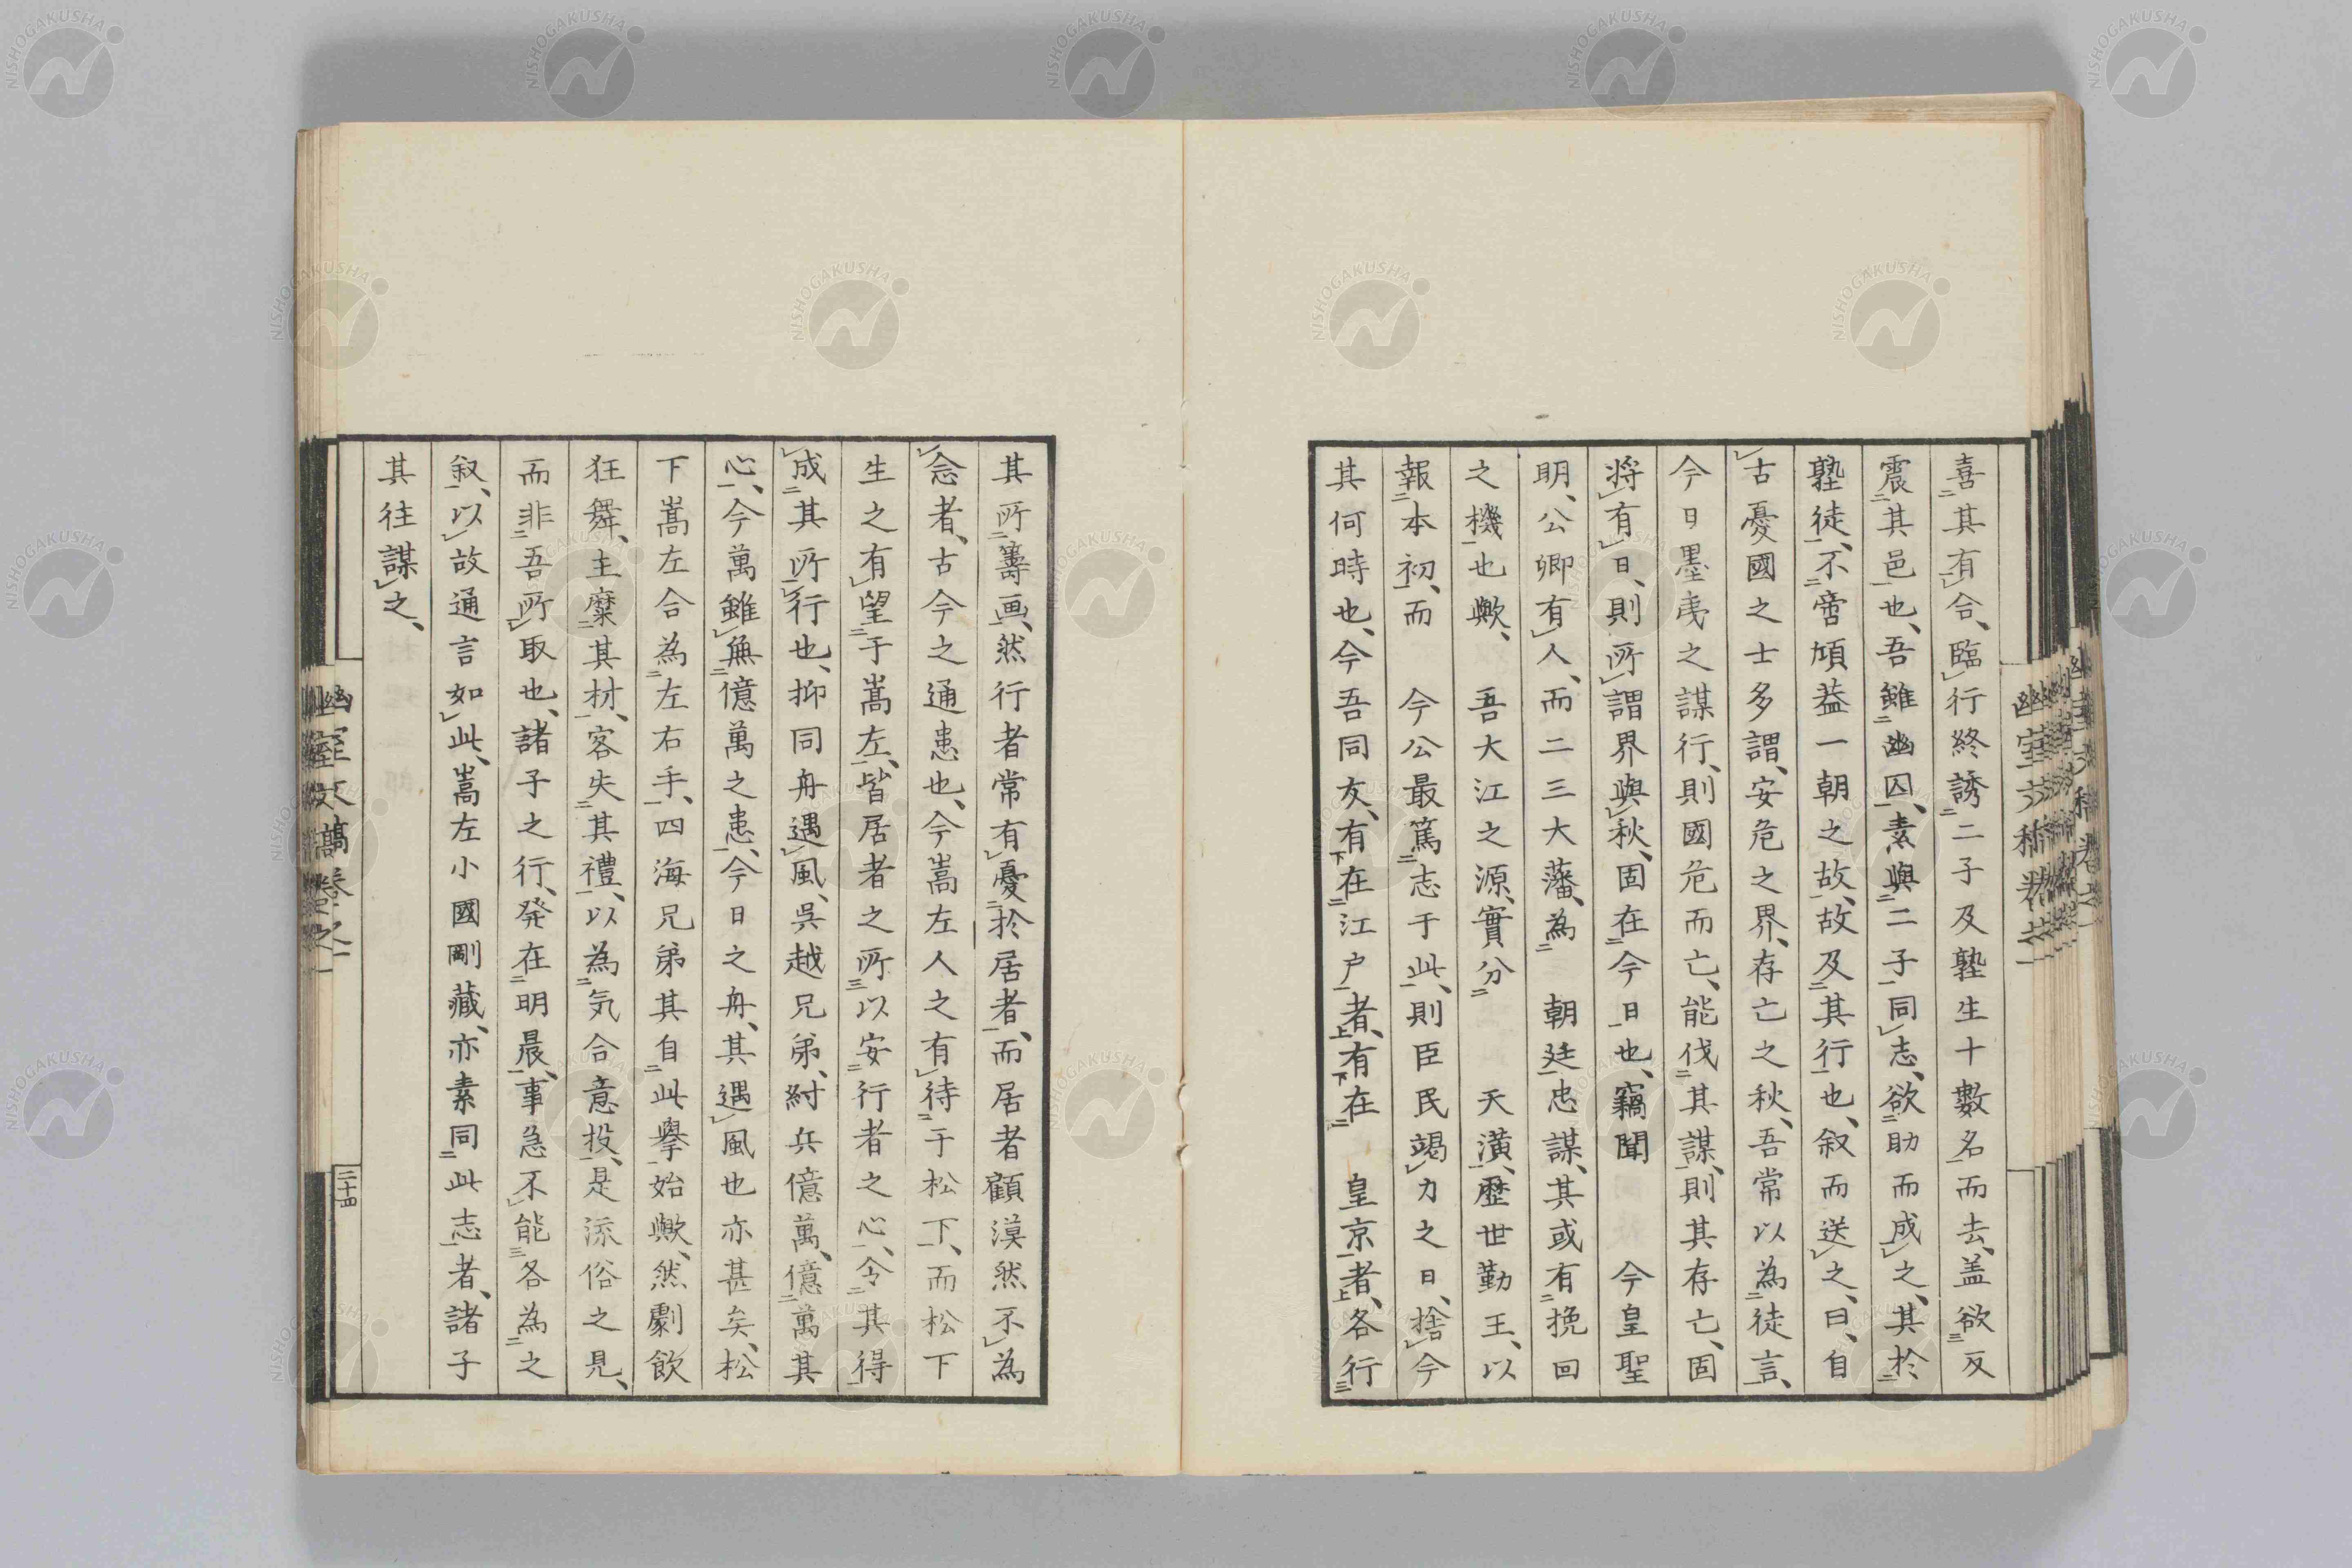 喜其有合、臨行終誘二子及塾生十數名而去、盖欲反
震其邑也、吾雖幽囚、素與二子同志、欲助而成之、其於
塾徒、不啻頃葢一朝之故、故及其行也、叙而送之、曰、自
古憂國之士多謂、安危之界、存亡之秋、吾常以為徒言、
今日墨夷之謀行、則國危而亡、能伐其謀、則其存亡、固
将有日、則所謂界與秋、固在今日也、竊聞 今皇聖
明、公卿有人、而二三大藩、為 朝廷忠謀、其或有挽回
之機也歟、 吾大江之源、實分 天潢、歷世勤王、以
報本初、而 今公最篤志于此、則臣民竭力之日、捨今
其何時也、今吾同友、有在江戸者、有在 皇京者、各行
其所籌画、然行者常有憂於居者、而居者顧漠然不為
念者、古今之通患也、今嵩左人之有待于松下、而松下
生之有望于嵩左、皆居者之所以安行者之心、令其得
成其所行也、抑同舟遇風、吳越兄弟、紂兵億萬、億萬其
心、今萬雖無億萬之患、今日之舟、其遇風也亦甚矣、松
下嵩左合為左右手、四海兄弟其自此擧始歟、然劇飲
狂舞、主糜其材、客失其禮、以為気合意投、是流俗之見、
而非吾所取也、諸子之行、発在明晨、事急不能各為之
叙、以故通言如此、嵩左小國剛藏、亦素同此志者、諸子
其往謀之、
幽室文稿卷之一
三十四
NISHOGAKUSHA